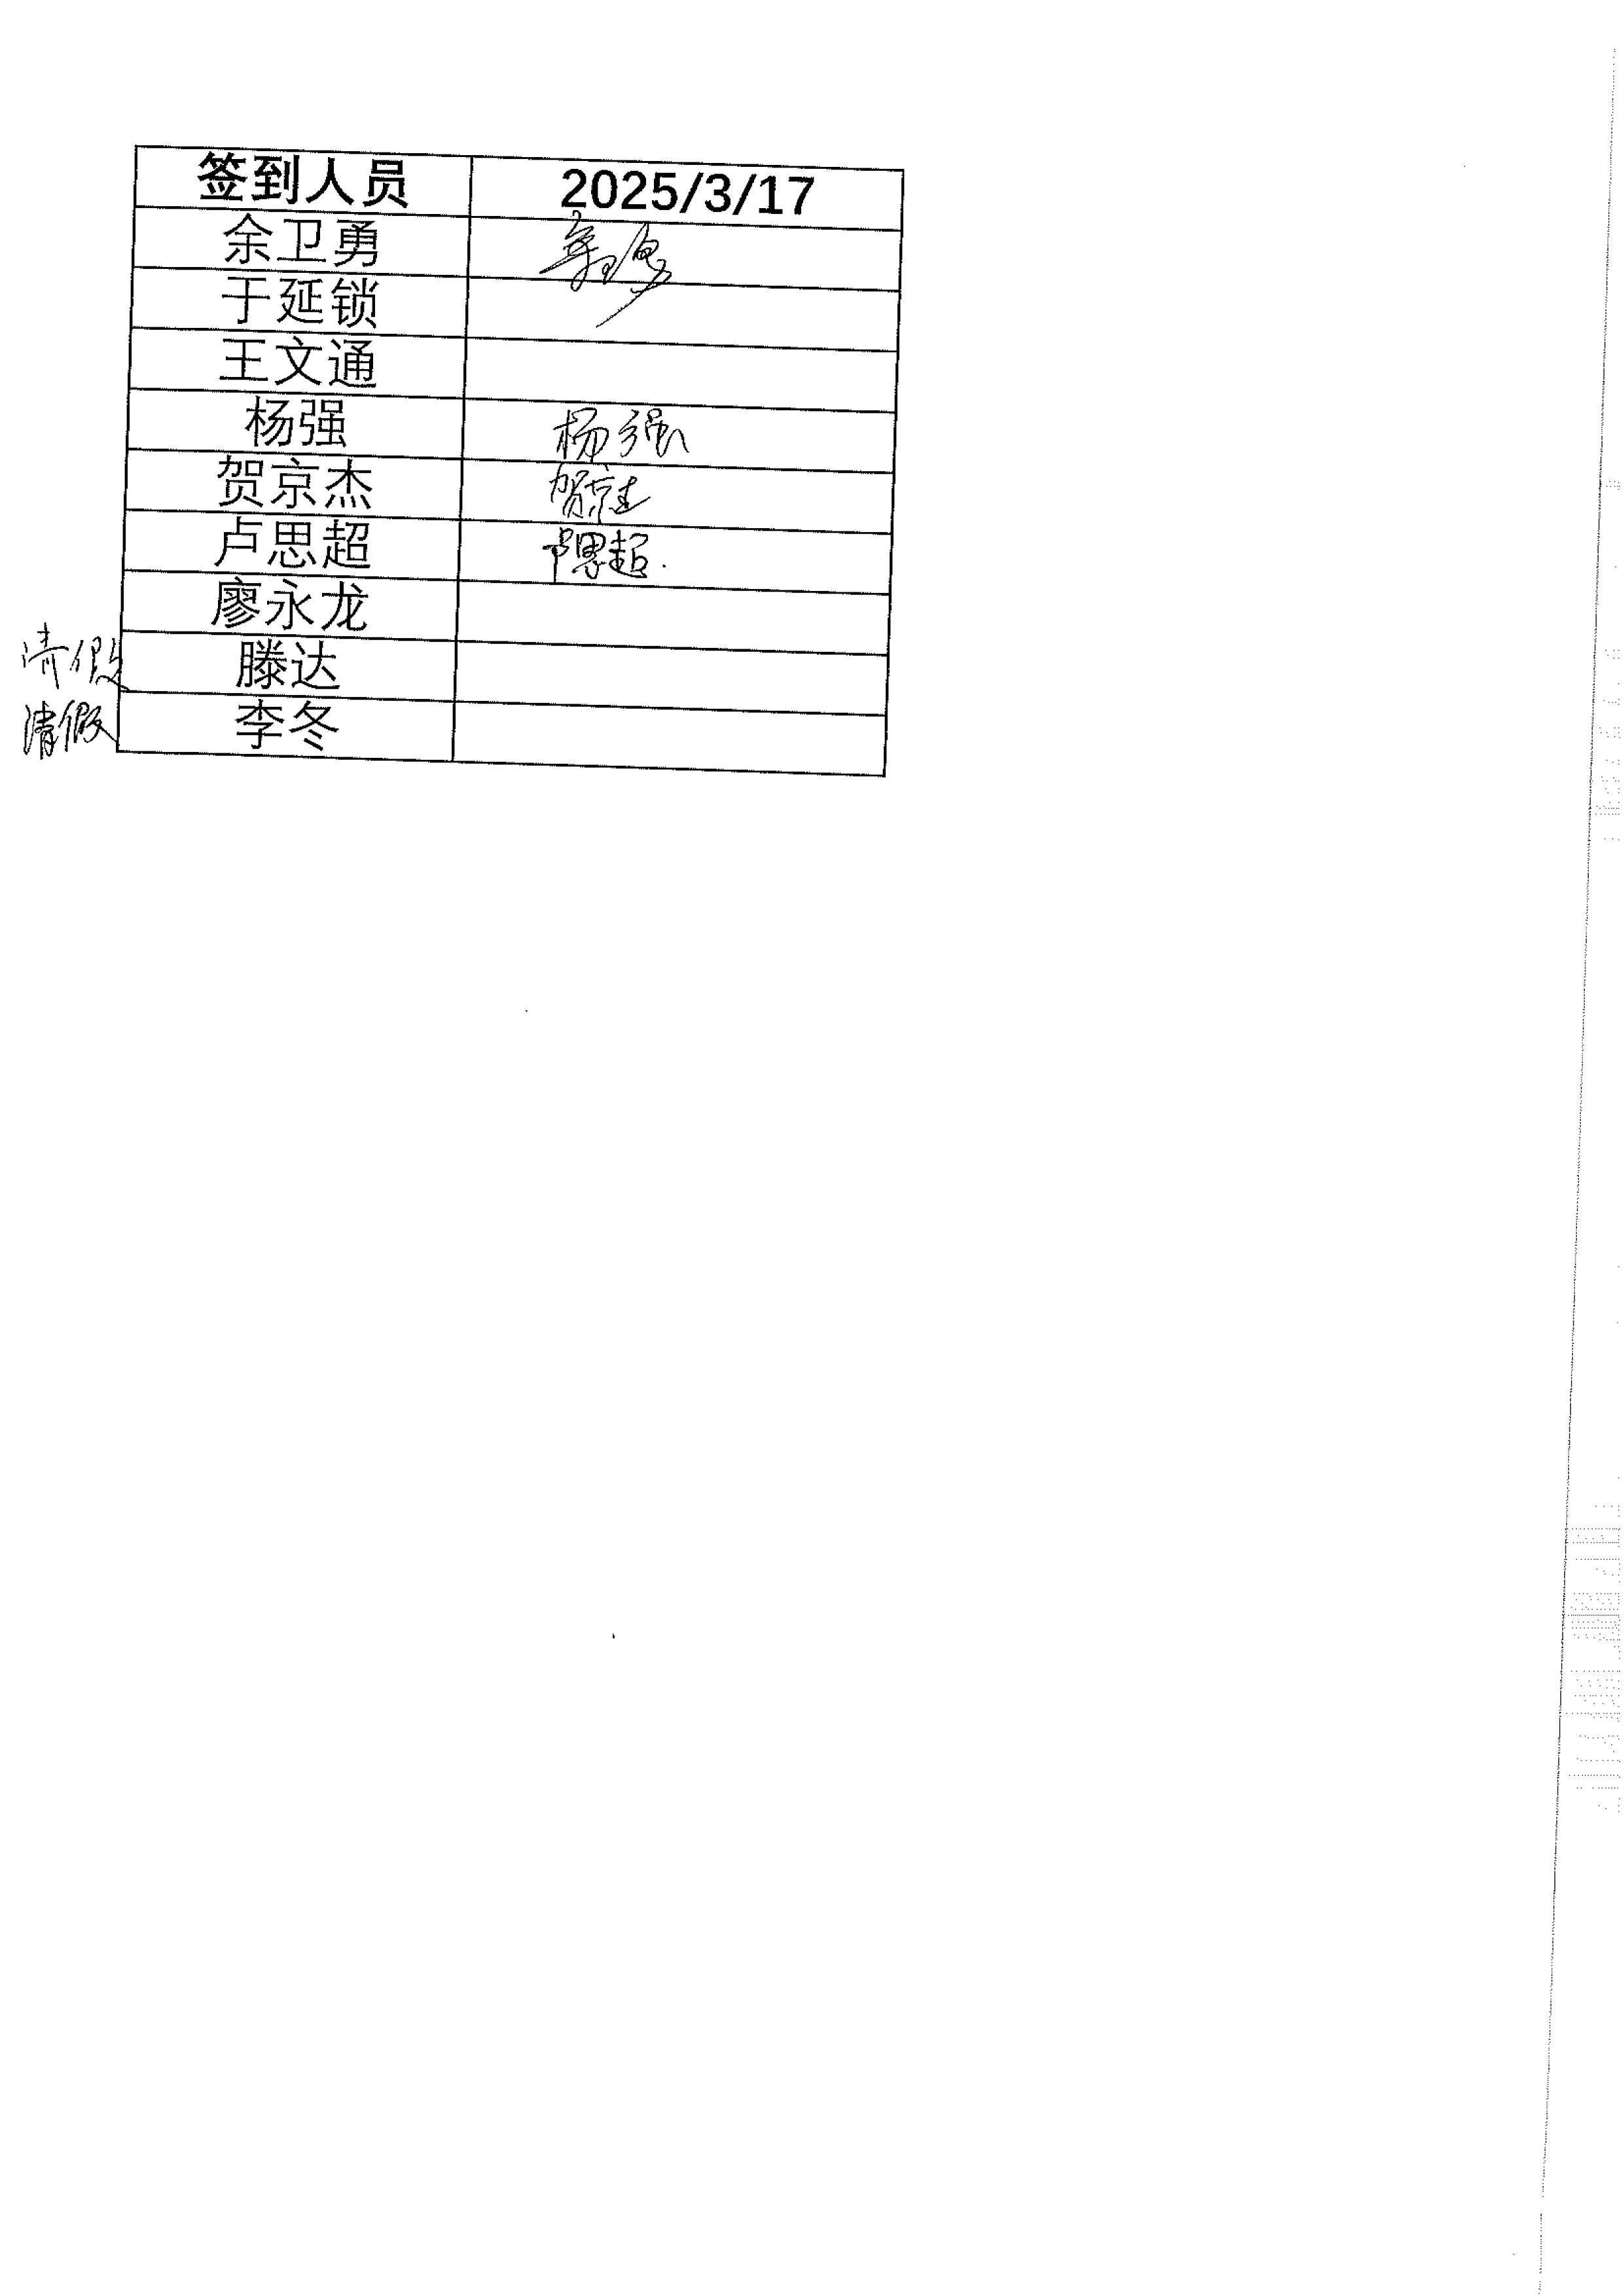 签到人员 2025/3/17
余卫勇
于延锁
王文通
杨强 杨强
贺京杰 贺京杰
卢思超 卢思超
廖永龙
请假 滕达
请假 李冬